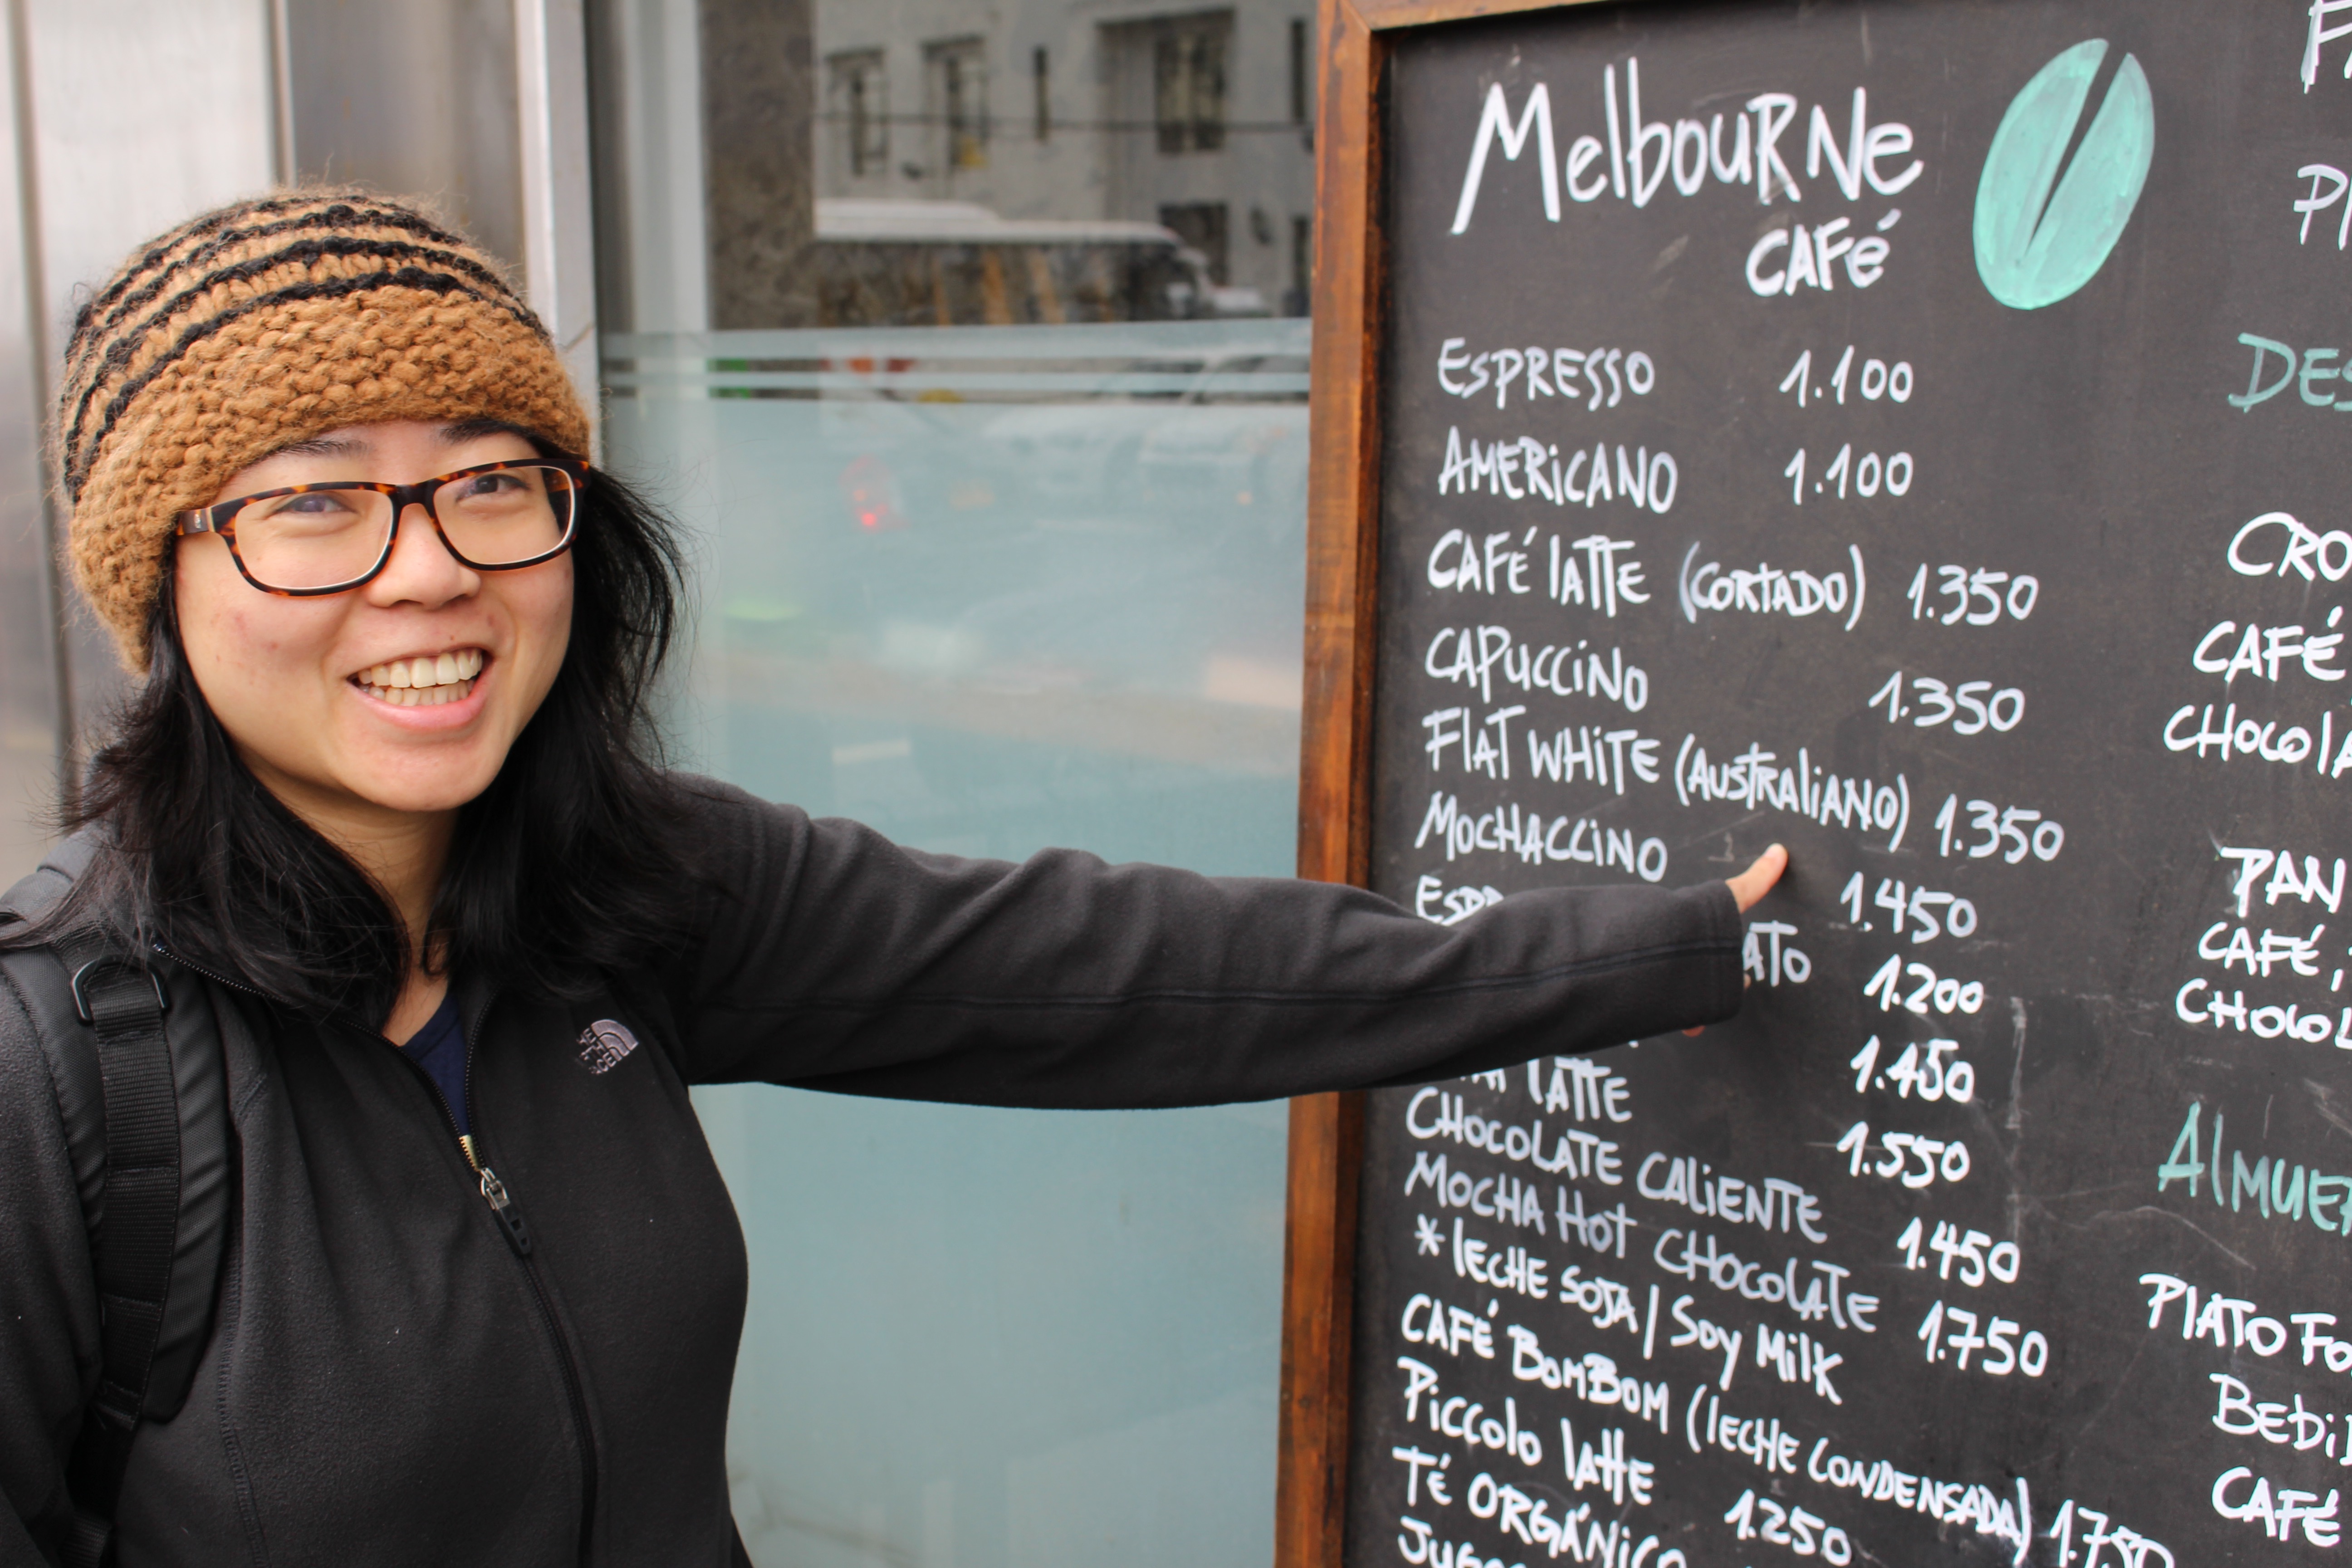 Melbourne
CAFé
ESPRESSO 1.100
AMERICANO 1.100
CAFÉ LATTE (CORTADO) 1.350
CAPUCCINO 1.350
FLAT WHITE (AUSTRALIANO) 1.350
MOCHACCINO 1.450
1.200
1.450
LATTE 1.550
CHOCOLATE CALIENTE 1.450
MOCHA HOT CHOCOLATE 1.750
*LECHE SOJA / SOY MILK
CAFÉ BOMBOM (LECHE CONDENSADA) 1.750
PICCOLO LATTE 1.250
TÉ ORGÁNICO
CAFÉ
PAN
CAFÉ,
PLATO
CAFÉ